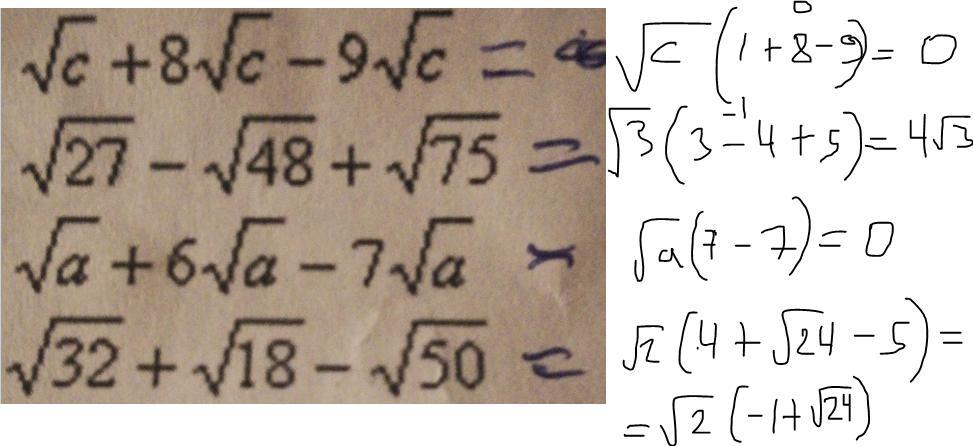 √c + 8√c − 9√c = √c (1 + 8 − 9) = 0
0
√27 − √48 + √75 = √3 (3 − 4 + 5) = 4√3
=-1
√a + 6√a − 7√a = √a (7 − 7) = 0
√32 + √18 − √50 = √2 (4 + √24 − 5) =
= √2 (−1 + √24)